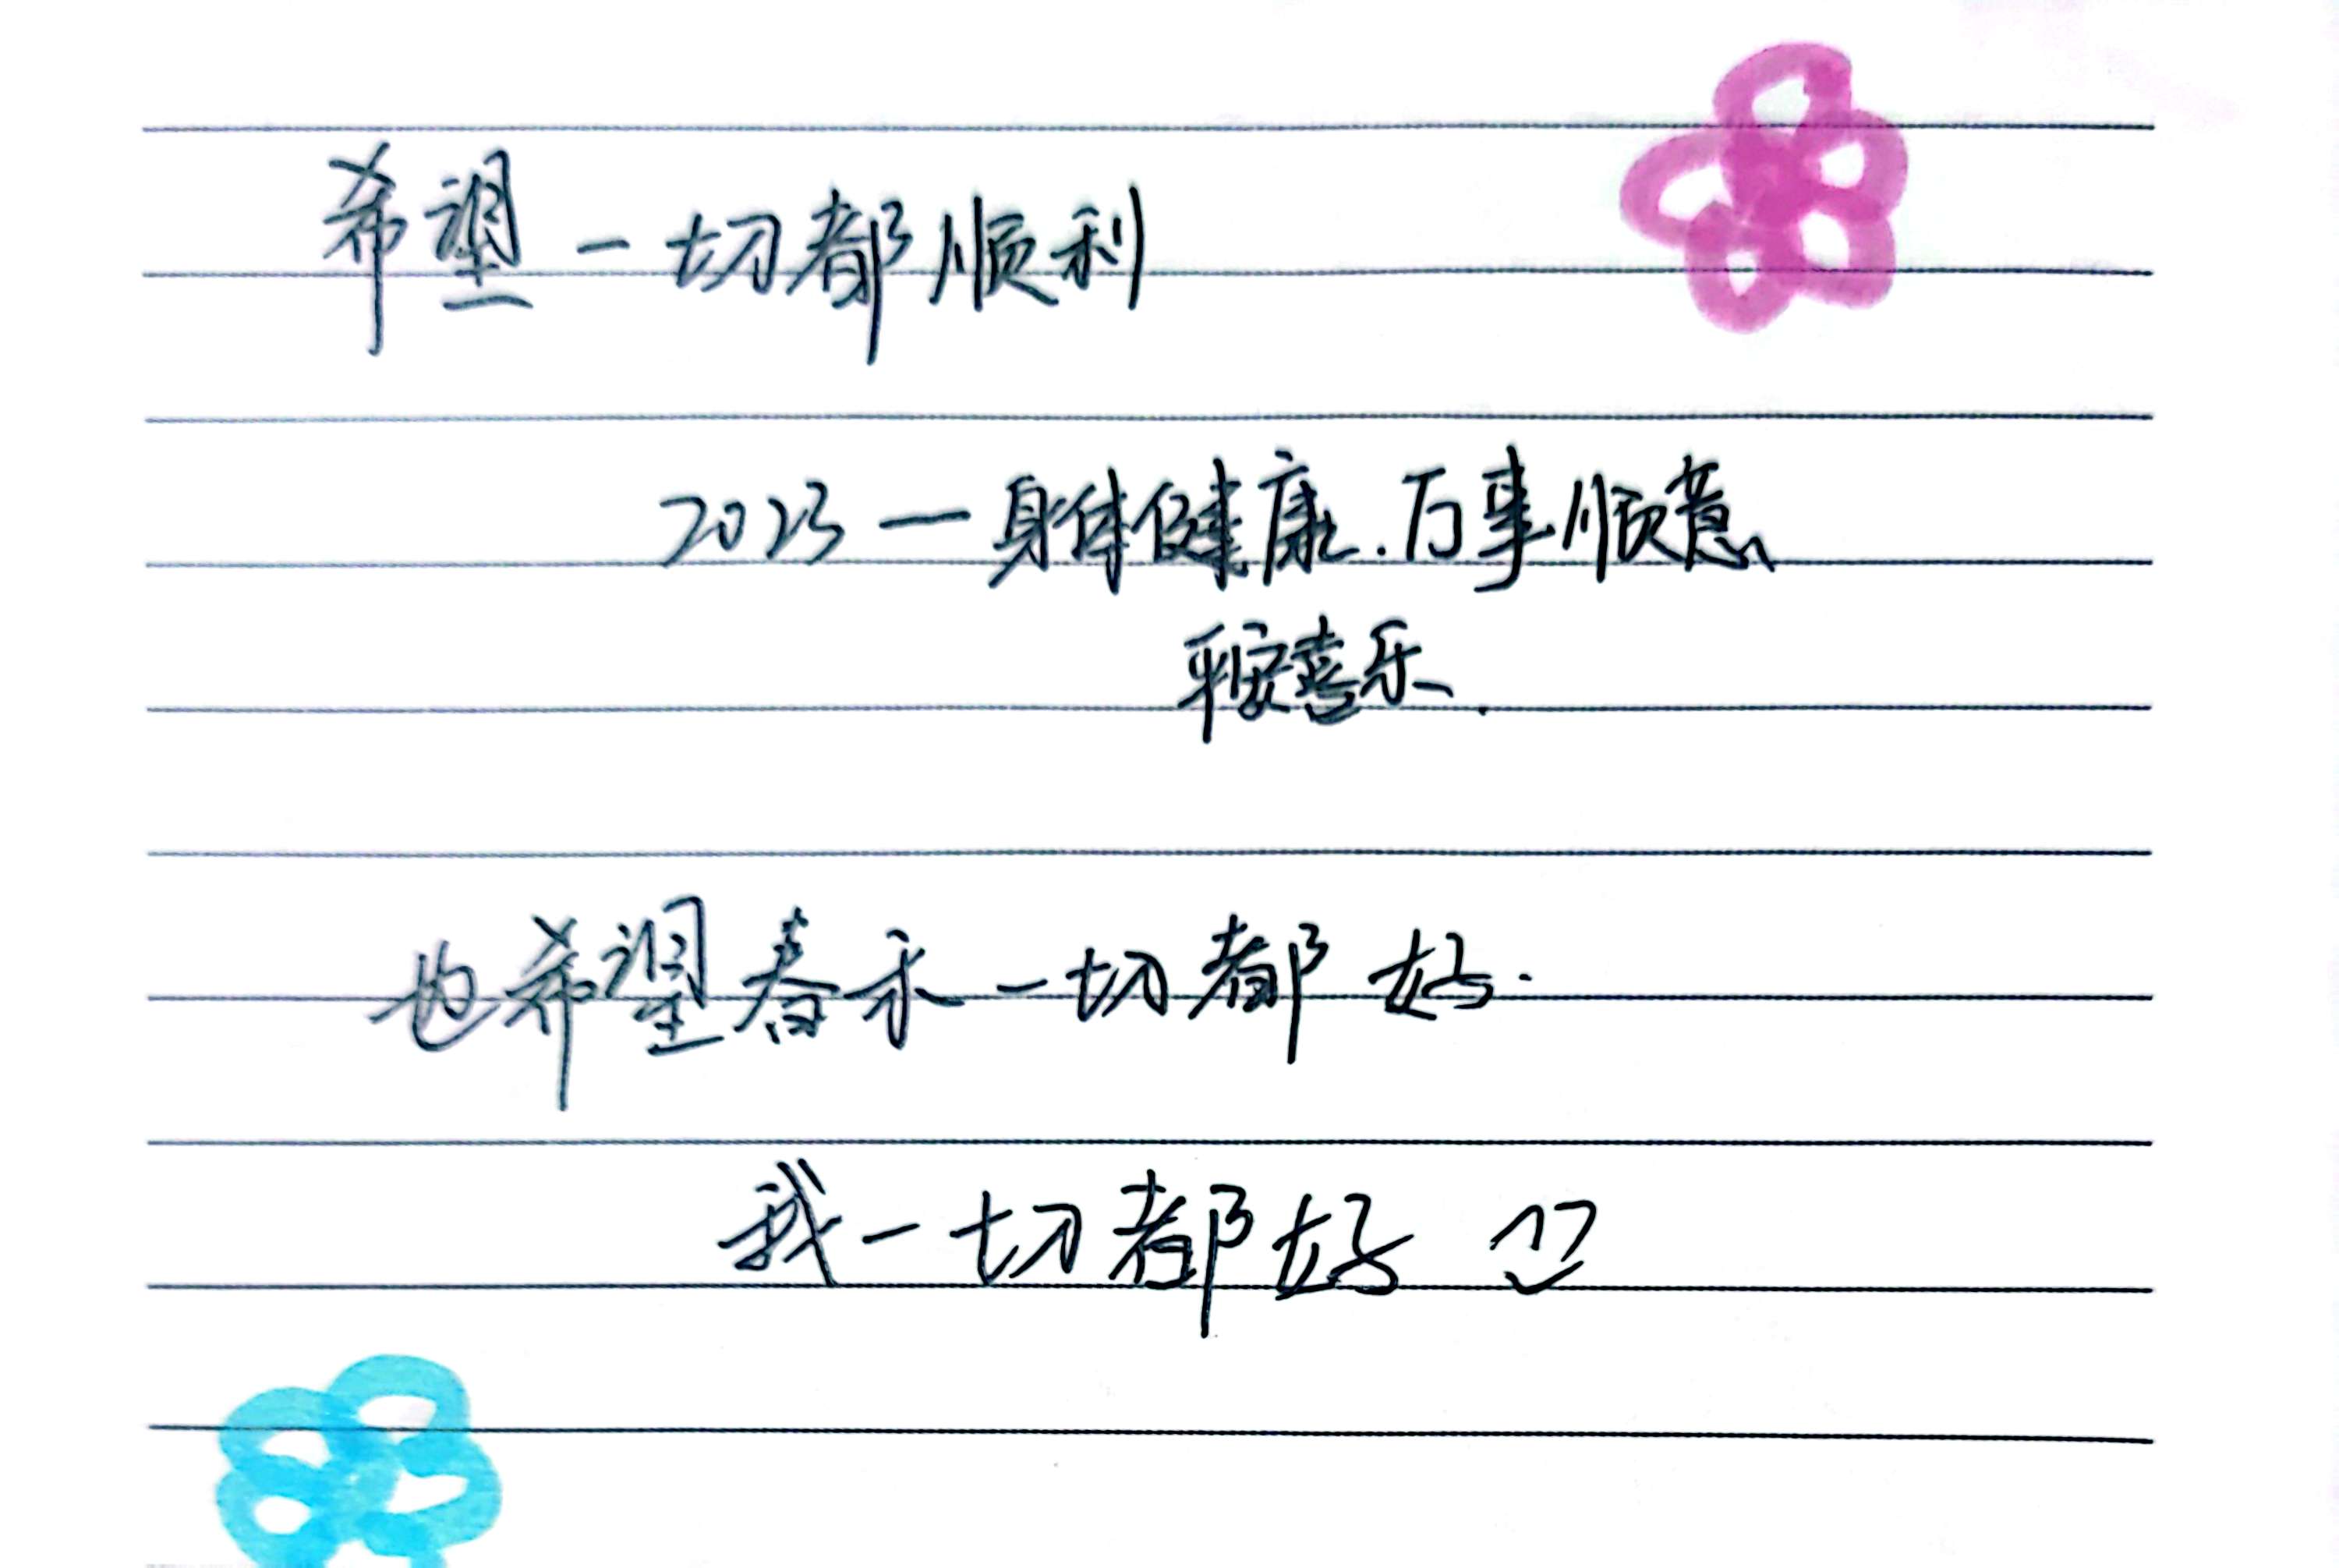 希望一切都顺利
2023—身体健康.万事顺意
平安喜乐.
也希望春禾一切都好.
我一切都好